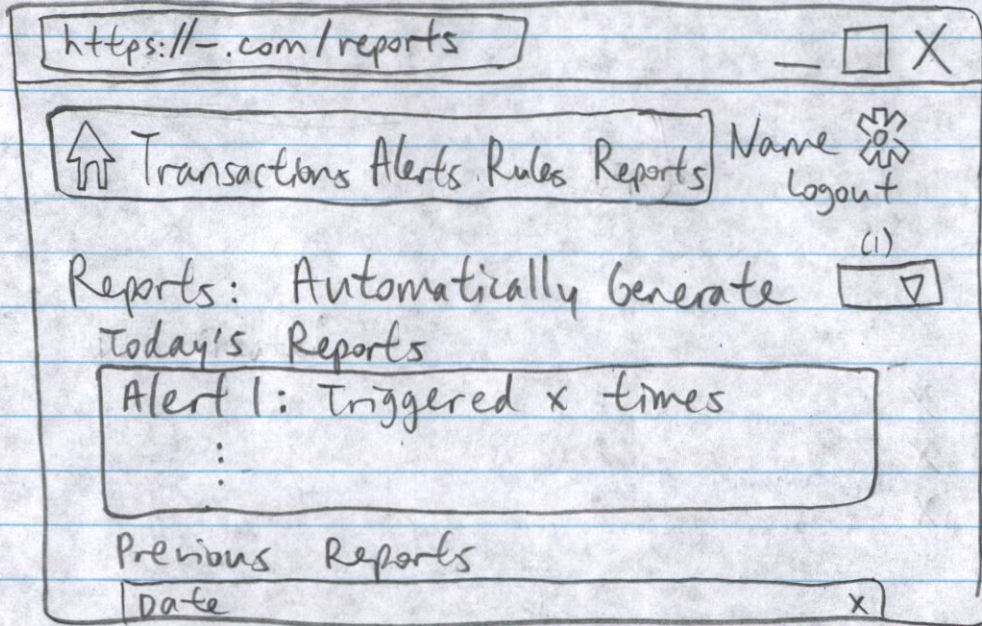 https://-.com/reports
_ X
Transactions Alerts Rules Reports
Name
Logout
(1)
Reports: Automatically Generate
Today's Reports
Alert 1: Triggered x times
:
:
Previous Reports
Date x